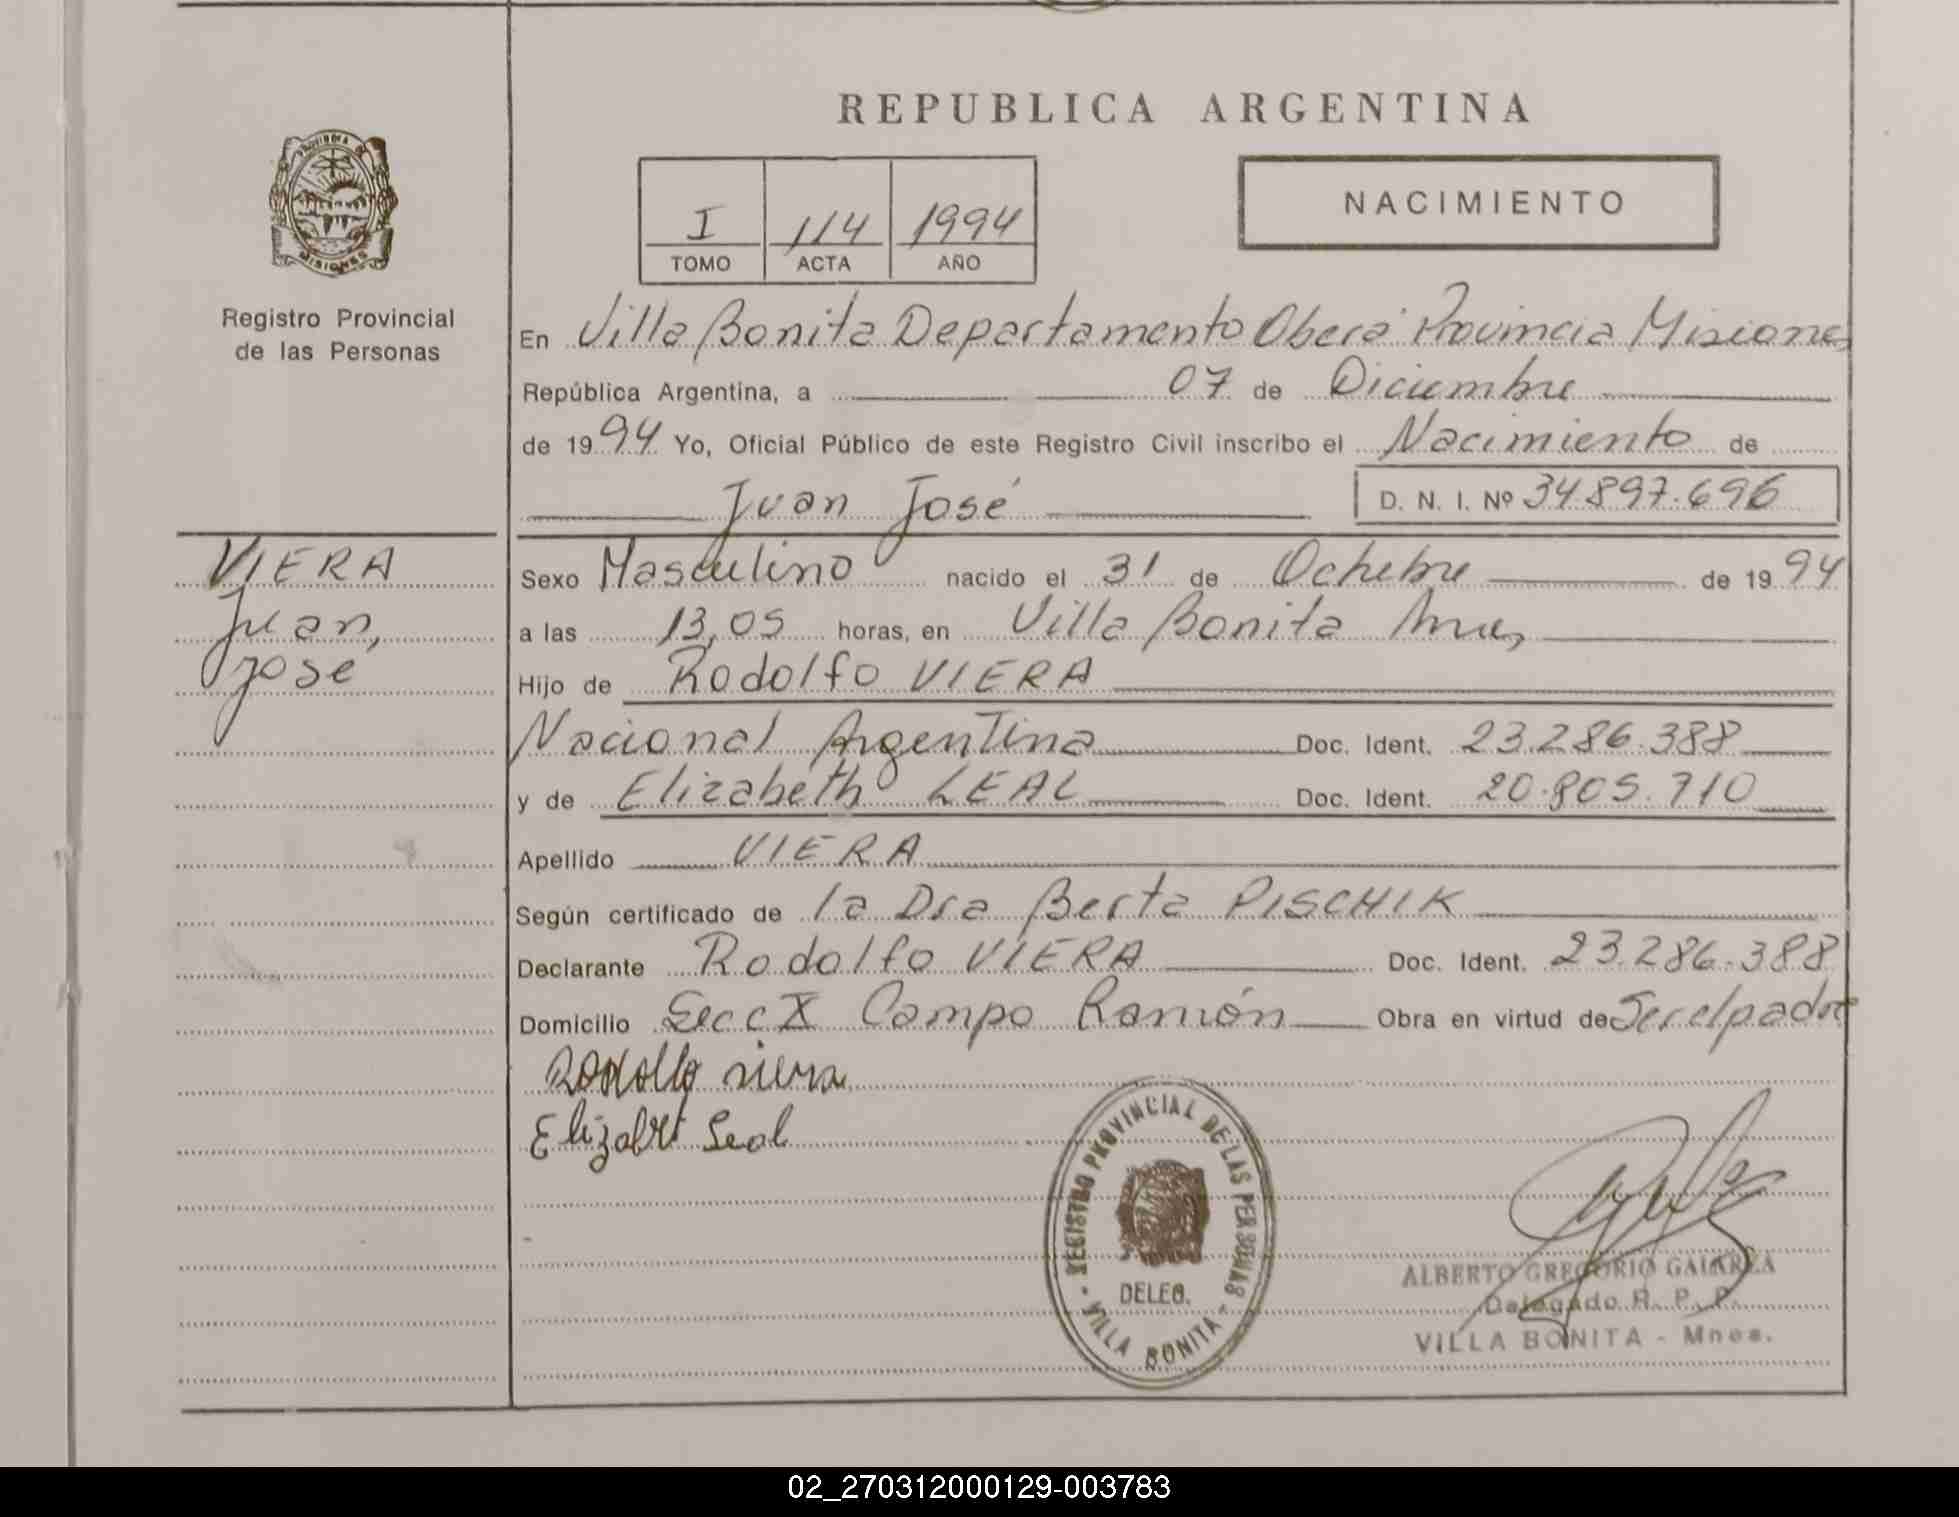 REPUBLICA ARGENTINA
PROVINCIA DE
MISIONES
Registro Provincial
de las Personas
I 114 1994
TOMO ACTA AÑO
NACIMIENTO
En Villa Bonita Departamento Oberá Provincia Misiones
República Argentina, a 07 de Diciembre
de 1994 Yo, Oficial Público de este Registro Civil inscribo el Nacimiento de
Juan José D. N. I. Nº 34.897.696
VIERA
Juan,
José
Sexo Masculino nacido el 31 de Octubre de 1994
a las 13,05 horas, en Villa Bonita Mnes,
Hijo de Rodolfo VIERA
Nacional Argentina Doc. Ident. 23.286.388
y de Elizabeth LEAL Doc. Ident. 20.805.710
Apellido VIERA
Según certificado de la Dra Berta PISCHIK
Declarante Rodolfo VIERA Doc. Ident. 23.286.388
Domicilio Secc X Campo Ramón Obra en virtud de Ser el padre
Rodolfo viera
Elizabet Leal
REGISTRO PROVINCIAL DE LAS PERSONAS
DELEG.
- VILLA BONITA -
ALBERTO GREGORIO GAIARZA
Delegado R. P. P.
VILLA BONITA - Mnes.
02_270312000129-003783